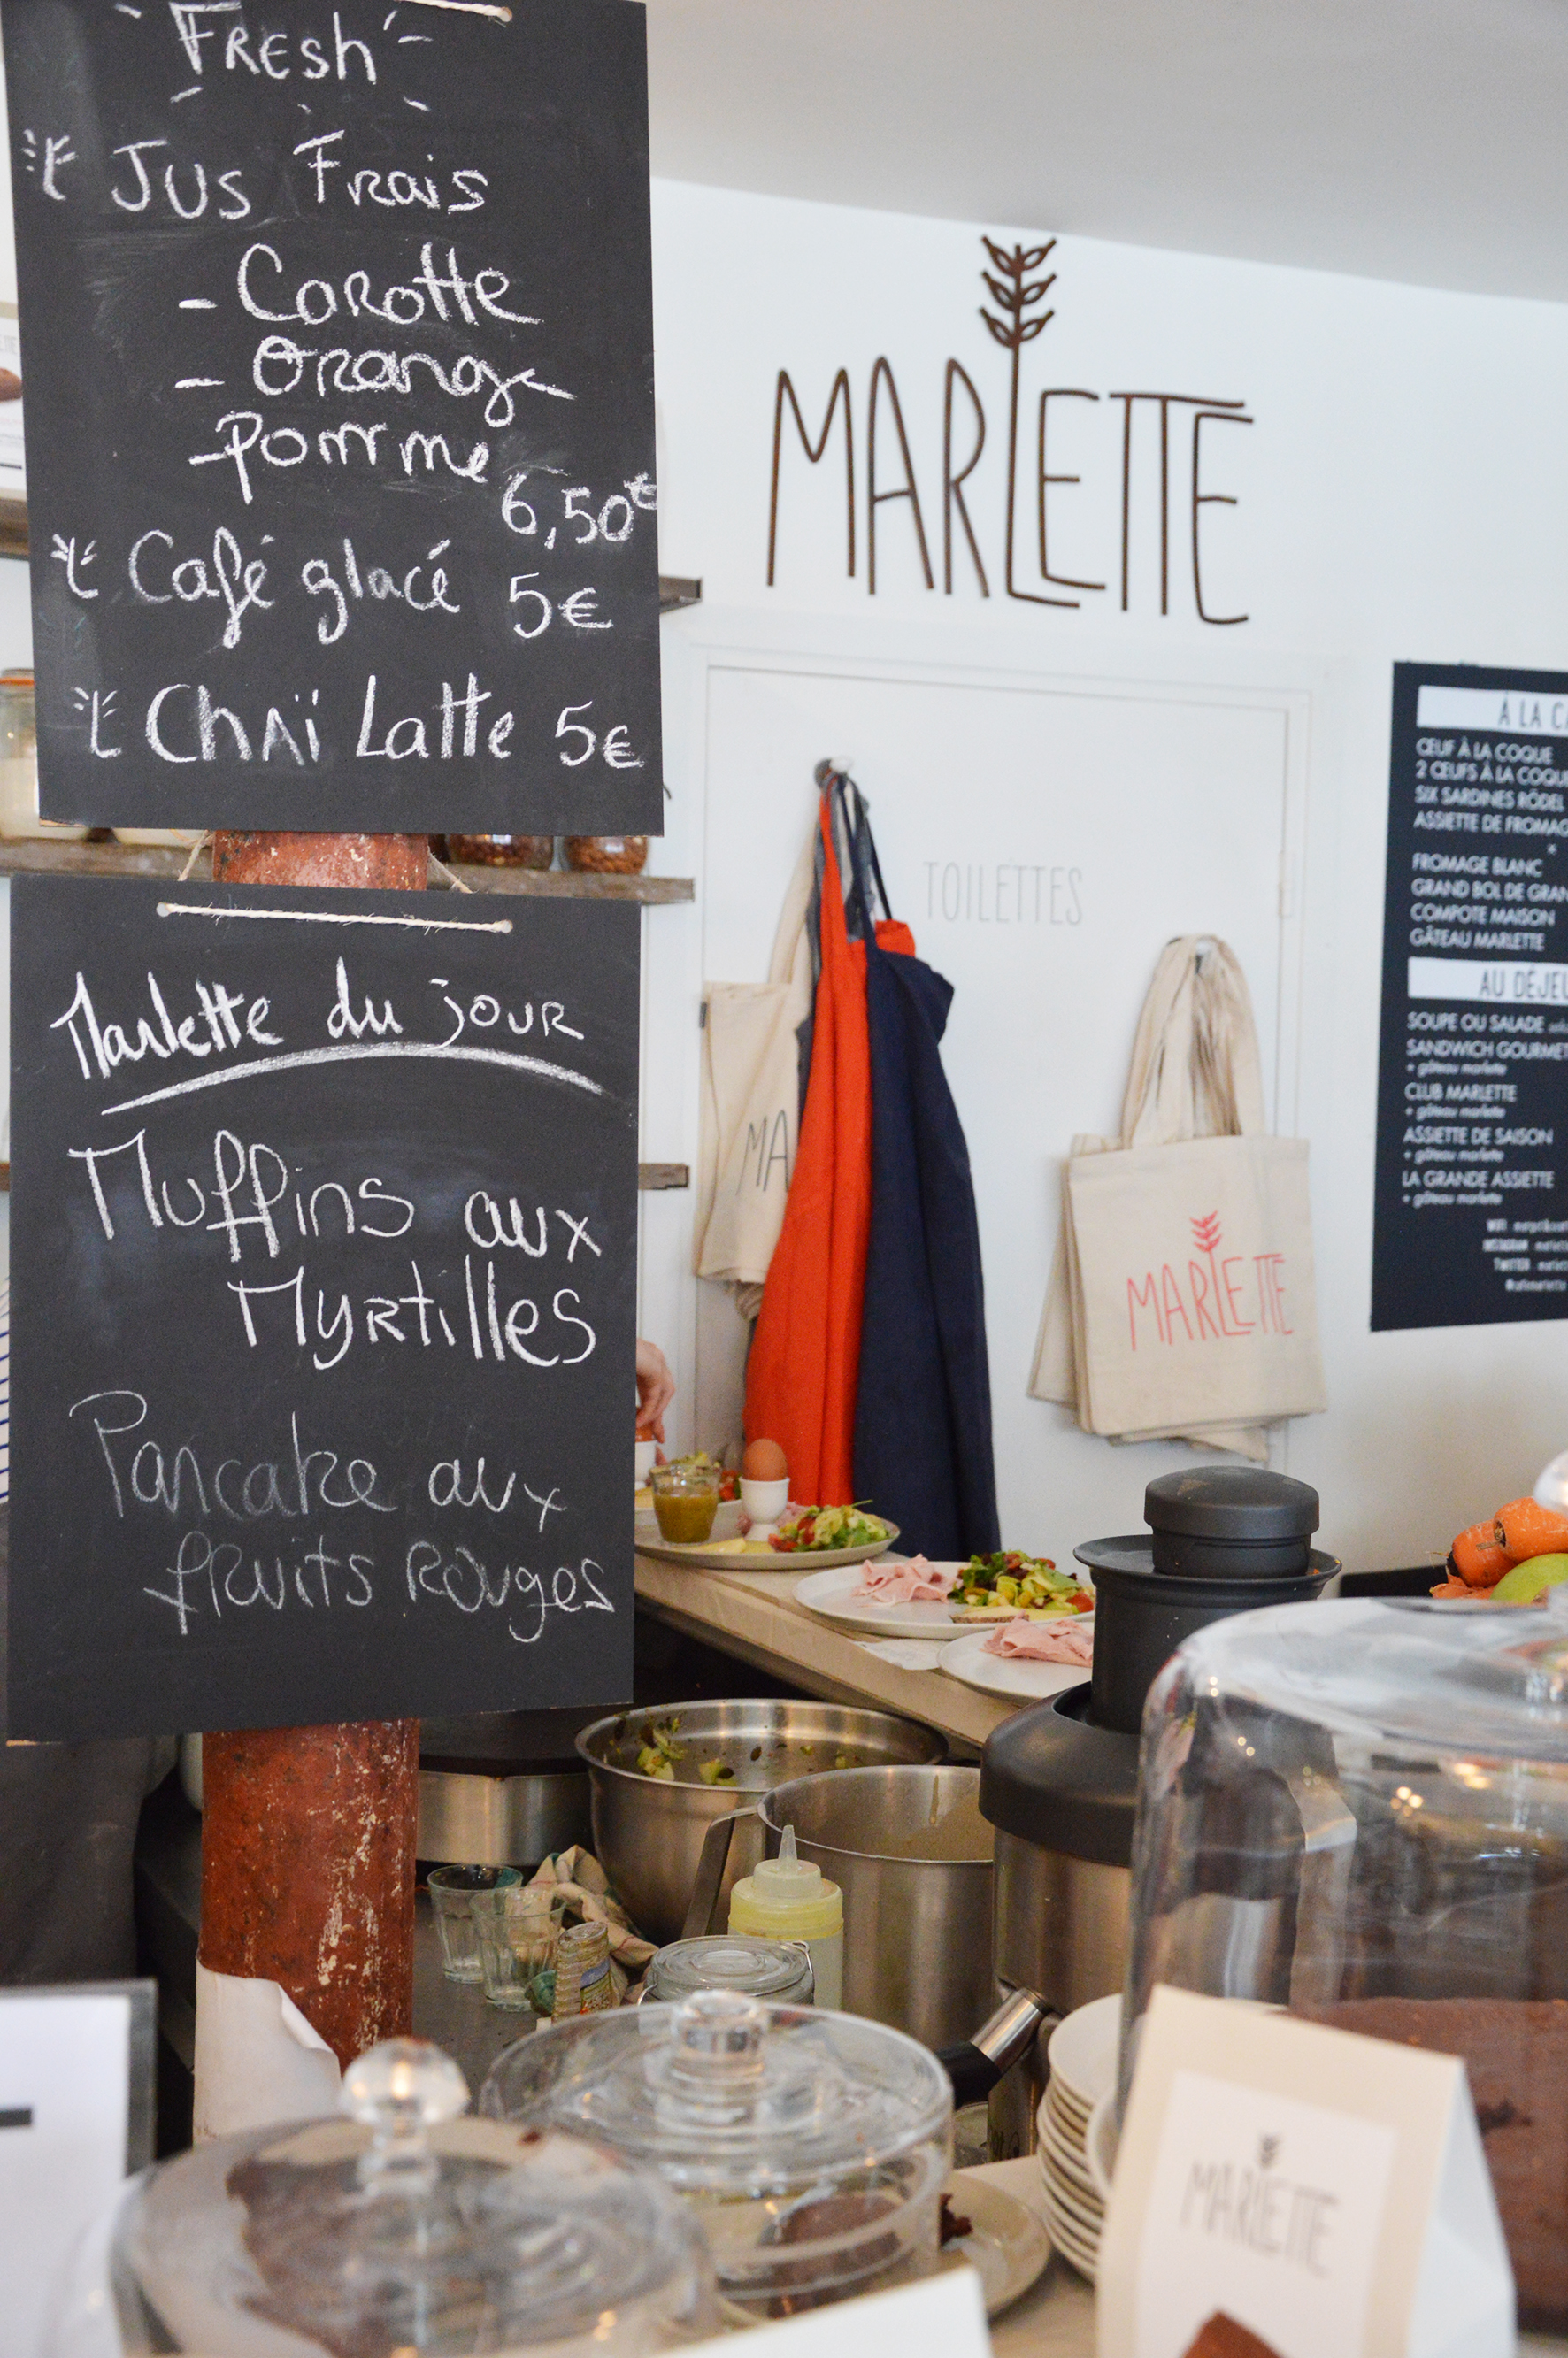 FRESH
JUS FRAIS
- CAROTTE
- ORANGE
- POMME
6,50€
Café glacé 5€
CHAÏ Latte 5€
Marlette du jour
Muffins aux
Myrtilles
Pancake aux
fruits rouges
MARLETTE
TOILETTES
MA
MARLETTE
À LA
ŒUF À LA COQUE
2 ŒUFS À LA
SIX SARDINES
ASSIETTE DE
FROMAGE BLANC
GRAND BOL DE
COMPOTE MAISON
GÂTEAU MARLETTE
AU
SOUPE OU SALADE
SANDWICH
+ gâteau marlette
CLUB MARLETTE
+ gâteau marlette
ASSIETTE DE SAISON
+ gâteau marlette
LA GRANDE ASSIETTE
+ gâteau marlette
WIFI
INSTAGRAM
TWITTER
MARLETTE